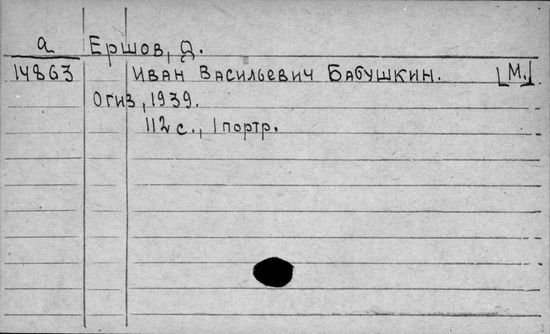 а Ершов, Д.
14863 Иван Васильевич Бабушкин. [М.]
Огиз, 1939.
112 с., 1 портр.